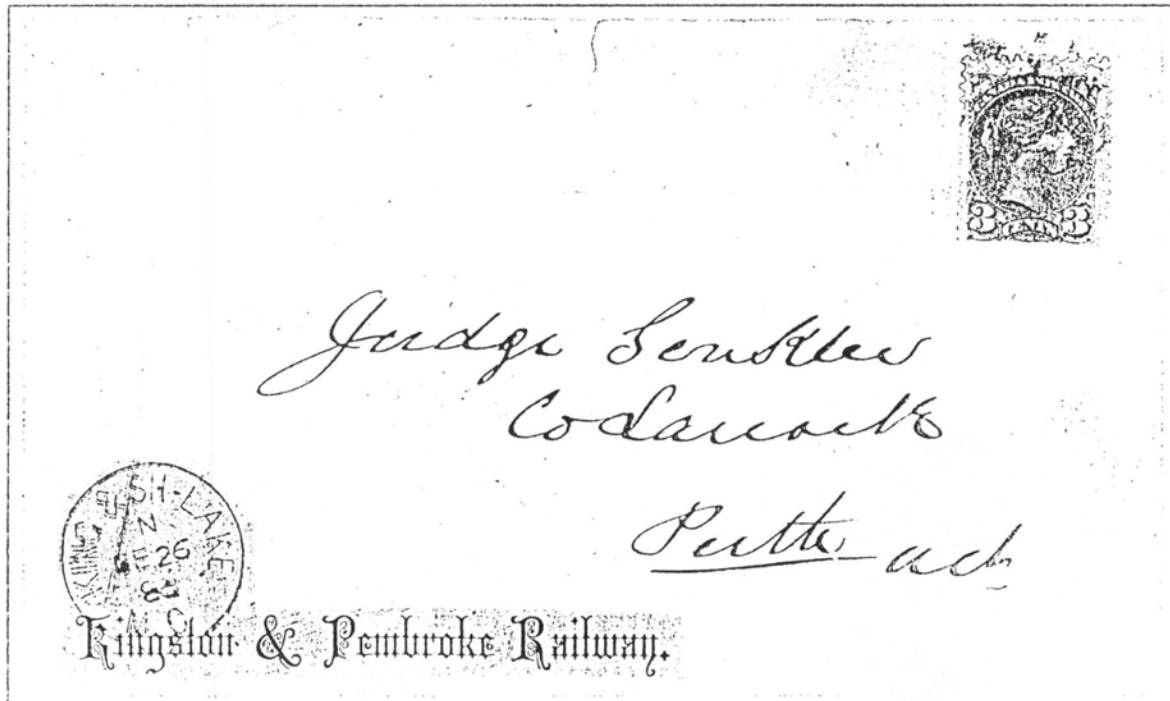 3 CENTS 3
Judge Senkler
Co Lanark
Perth
SH-LAKE
N
26
Kingston & Pembroke Railway.